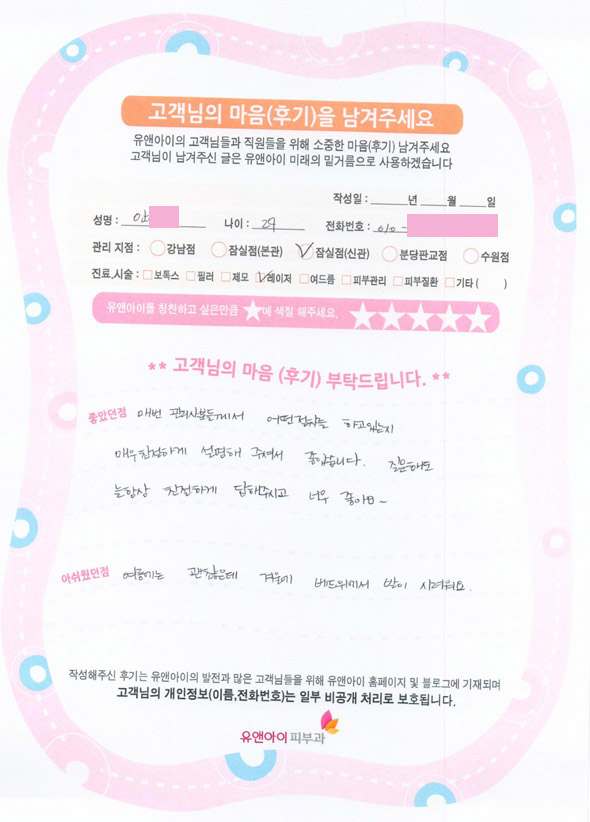 고객님의 마음(후기)을 남겨주세요
유앤아이의 고객님들과 직원들을 위해 소중한 마음(후기) 남겨주세요
고객님이 남겨주신 글은 유앤아이 미래의 밑거름으로 사용하겠습니다
작성일 : 년 월 일
성명 : 나이 : 29 전화번호 : 010 -
관리 지점 : 강남점 잠실점(본관) 잠실점(신관) 분당판교점 수원점
진료,시술 : 보톡스 필러 제모 레이저 여드름 피부관리 피부질환 기타 ( )
유앤아이를 칭찬하고 싶은만큼 ★에 색칠 해주세요. ★★★★★
** 고객님의 마음 (후기) 부탁드립니다. **
좋았던점 매번 관리사분들께서 어떤 하고있는지
매우친절하게 설명해 주셔서 좋았습니다. 질문해도
늘항상 친절하게 답해주시고 너무 좋아요~
아쉬웠던점 여름에는 괜찮은데 겨울에 베드위에서 발이 시려워요.
작성해주신 후기는 유앤아이의 발전과 많은 고객님들을 위해 유앤아이 홈페이지 및 블로그에 기재되며
고객님의 개인정보(이름,전화번호)는 일부 비공개 처리로 보호됩니다.
유앤아이 피부과